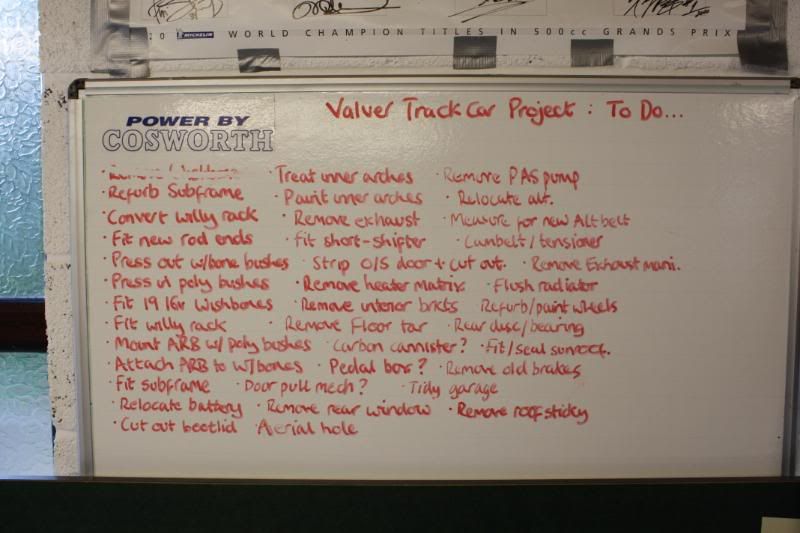 MICHELIN WORLD CHAMPION TITLES IN 500cc GRANDS PRIX
POWER BY
COSWORTH
Valver Track Car Project : To Do...
· Treat inner arches · Remove PAS pump
· Refurb Subframe · Paint inner arches · Relocate alt.
· Convert willy rack · Remove exhaust · Measure for new Alt belt
· Fit new rod ends · Fit short-shifter · Cambelt/tensioner
· Press out w/bone bushes · Strip O/S door + cut out. · Remove Exhaust mani.
· Press in poly bushes · Remove heater matrix · Flush radiator
· Fit 19 16v Wishbones · Remove interior brkts Refurb/paint wheels
· Fit willy rack · Remove Floor tar · Rear disc/bearing
· Mount ARB w/ poly bushes · Carbon cannister? · Fit/seal sunroof.
· Attach ARB to W/bones · Pedal box? · Remove old brakes
· Fit subframe · Door pull mech? · Tidy garage
· Relocate battery · Remove rear window · Remove roof sticky
· Cut out bootlid · Aerial hole